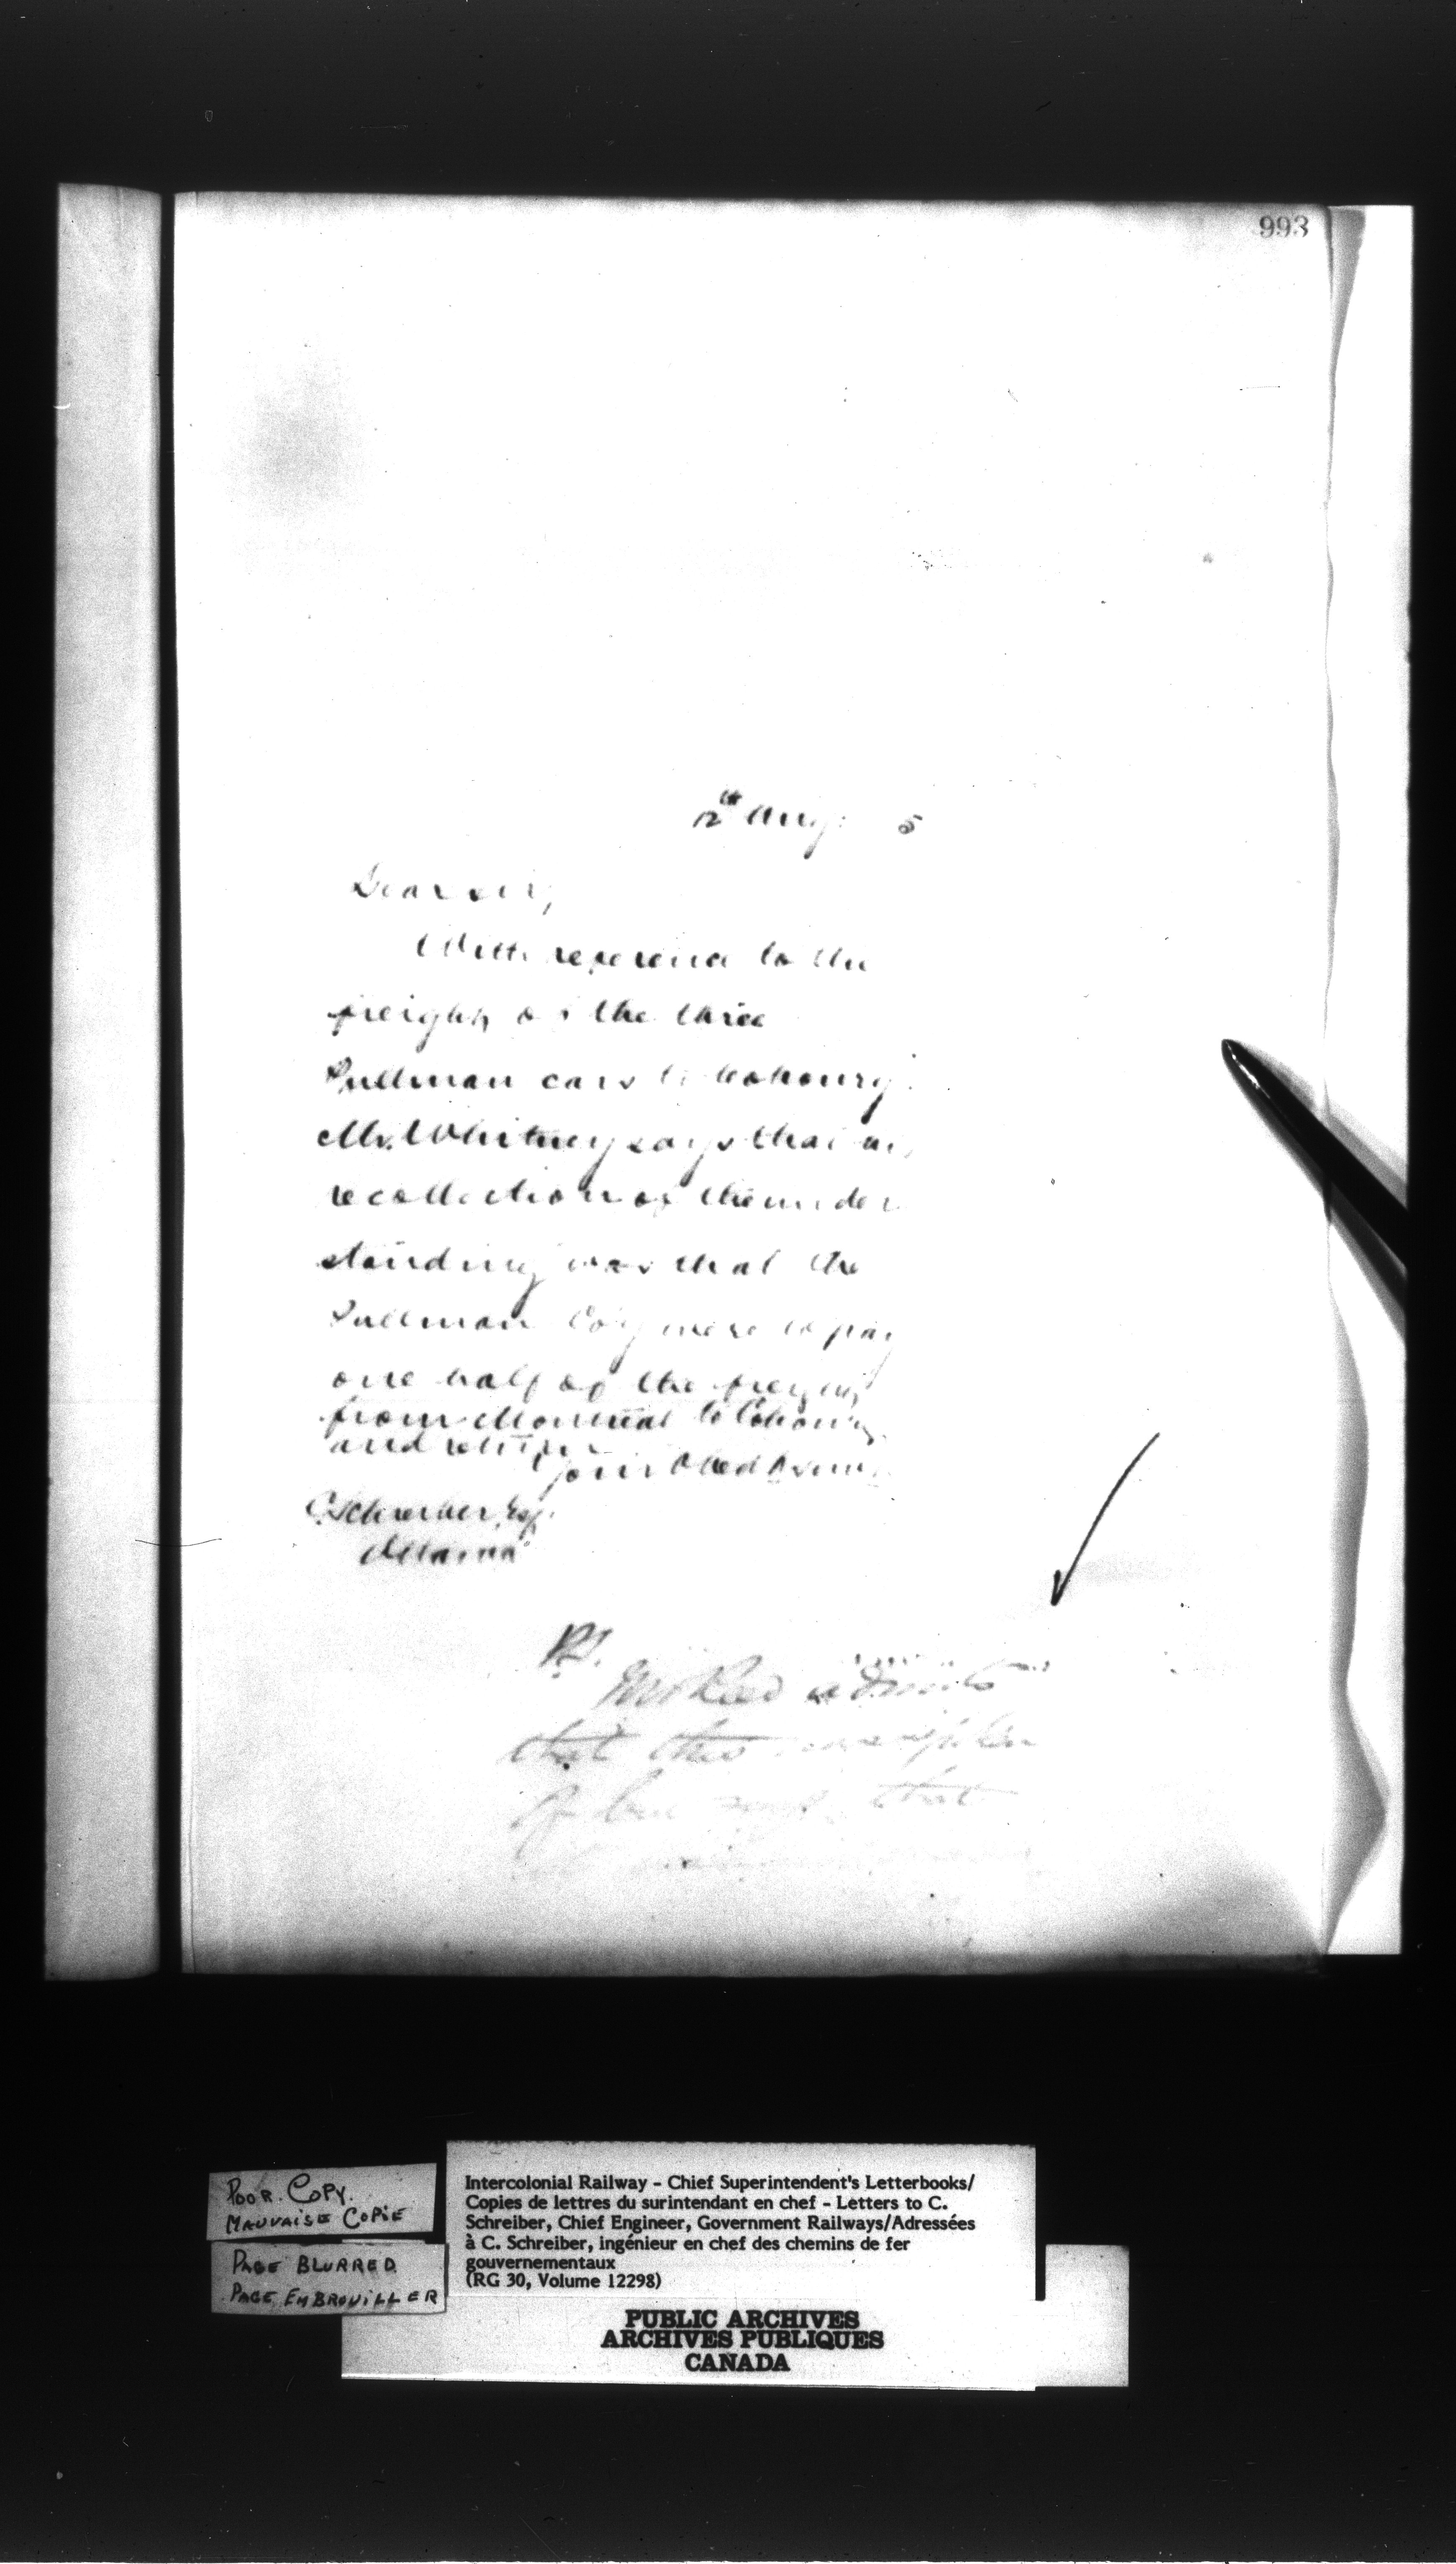 993
12th Aug: 5
Dear Sir,
With reference to the
freight of the three
Pullman cars to Cobourg.
Mr. Whitney says that his
recollection of the under
standing was that the
Pullman Coy were to pay
one half of the freight
from Montreal to Cobourg
and return
Your Obed Serv
C. Schreiber, Esq.
Ottawa
P.S.
that this was spoken
of but says that
POOR. COPY.
MAUVAISE COPIE
PAGE BLURRED.
PAGE EMBROUILLER
Intercolonial Railway - Chief Superintendent's Letterbooks/
Copies de lettres du surintendant en chef - Letters to C.
Schreiber, Chief Engineer, Government Railways/Adressées
à C. Schreiber, ingénieur en chef des chemins de fer
gouvernementaux
(RG 30, Volume 12298)
PUBLIC ARCHIVES
ARCHIVES PUBLIQUES
CANADA